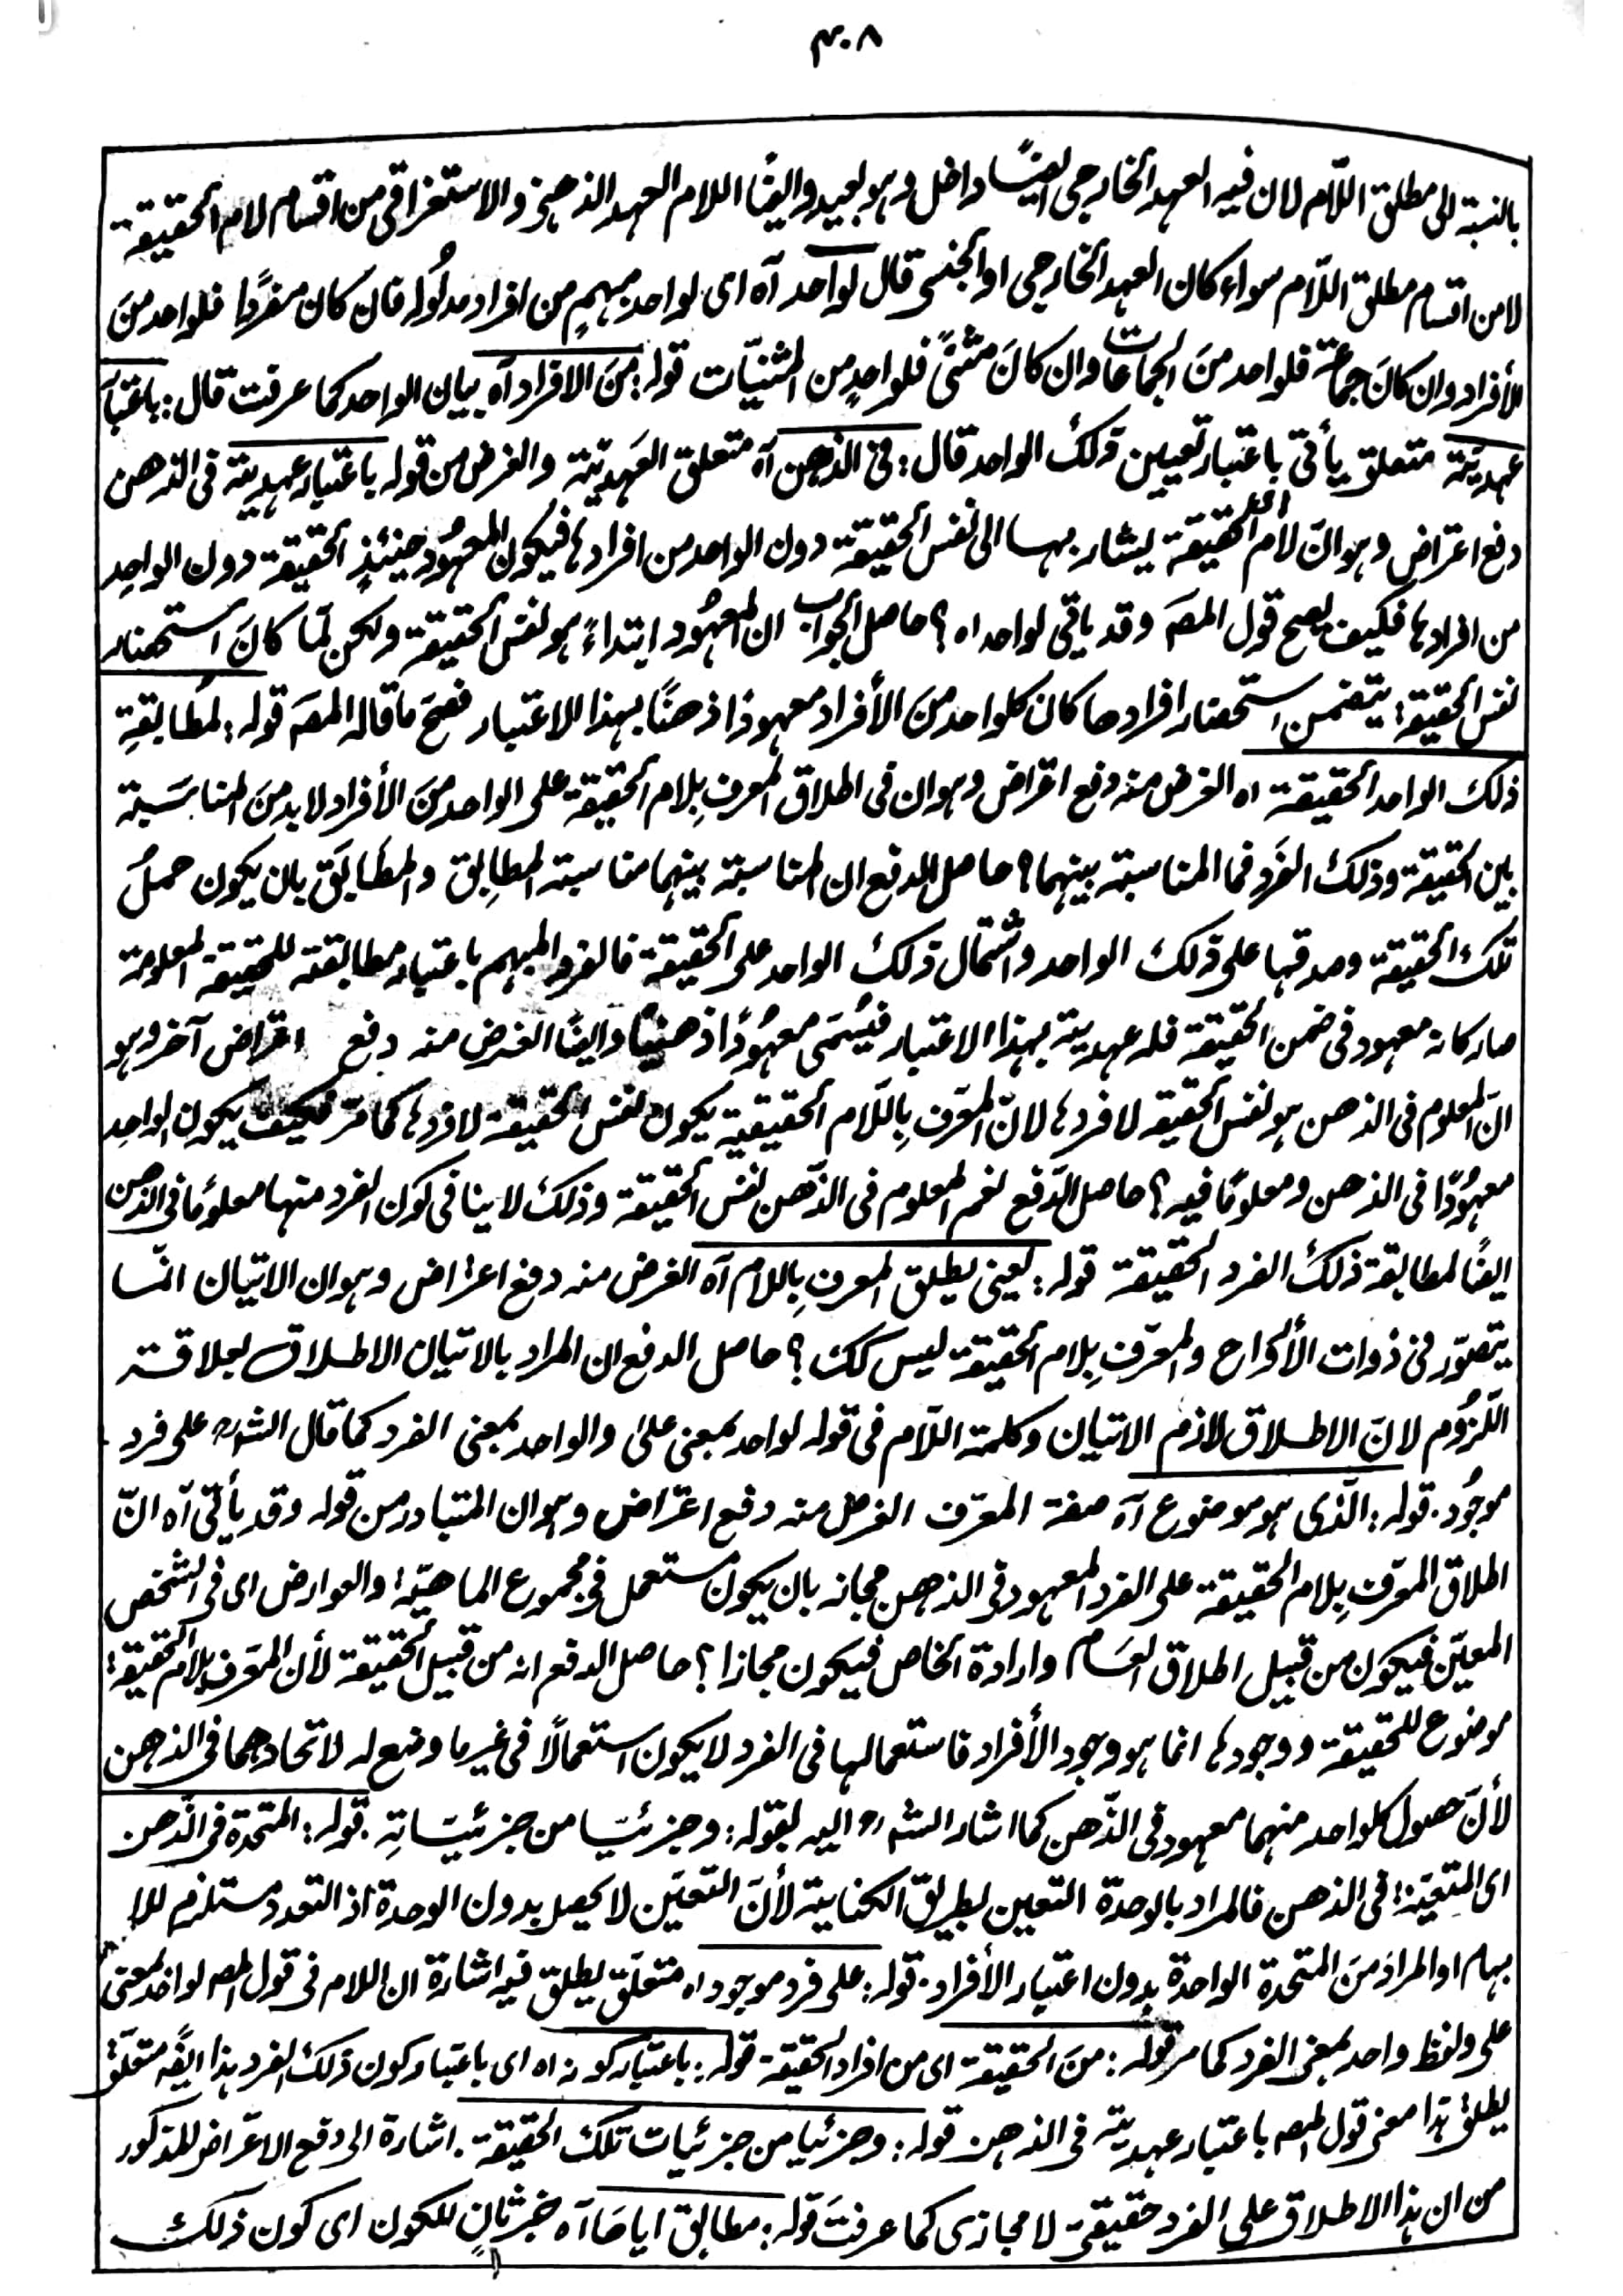 ٣٠٨
بالنسبة الى مطلق اللّام لان فيه العهد الخارجى ايضًا داخل وهو بعيد وايضًا اللام العهد الذهنى والاستغراقى من اقسام لام الحقيقة
لا من اقسام مطلق اللّام سواء كان العهد الخارجى او الجنسى قال لواحد آه اى لواحد مبهمٍ من افراد مدلُوله فان كان مفردًا فلواحد منَ
الأفراد وان كانَ جماعةً فلواحد منَ الجماعات وان كانَ مثنىً فلواحدٍ من المثنيّات قوله: منَ الافراد آه بيان الواحد كما عرفت قال: باعتبار
عهديّتة متعلق يأتى باعتبار تعيين ذلك الواحد قال: فى الذهن آه متعلق العَهديّتة والغرض من قوله باعتبار عهديتة فى الذهن
دفع اعتراض وهو انّ لام الحقيقة يشار بها الى نفس الحقيقة دون الواحد من افرادها فيكون المعهُود حينئذٍ الحقيقة دون الواحدِ
من افرادها فكيف يصح قول المصَ وقد ياتى لواحد اه؟ حاصل الجواب ان المعهُود ابتداءً هو نفس الحقيقة ولكن لمّا كانَ استحضار
نفس الحقيقة يتضمن استحضار افرادها كان كلواحد منَ الأفراد معهودًا ذهنًا بهذا الاعتبار فصَحّ ما قاله المصَ قوله: لمُطابقةِ
ذلك الواحد الحقيقة اه الغرض منه دفع اعتراض وهو ان فى اطلاق المعرف بِلام الحقيقة على الواحد منَ الأفراد لابد منَ المناسَبة
بين الحقيقة وذلك الفَرد فما المناسبة بينهما؟ حاصل الدفع ان المناسبة بينهما مناسبة المطابِق والمطابَق بان يكون حملُ
تلك الحقيقة وصدقها على ذلك الواحد واشتمال ذلك الواحد على الحقيقة فالفرد المبهم باعتبار مطابقته للحقيقة المعلومة
صار كانه معهود فى ضمن الحقيقة فله عهديتة بهذا الاعتبار فيُسَمّى معهُودًا ذهنيًا وايضًا الغرض منه دفع اعتراض آخر وهو
انّ المعلوم فى الذهن هو نفس الحقيقة لا فردها لانّ المعرّف بِاللّام الحقيقية يكون نفس الحقيقة لا فردها كما مرّ فكيف يكون الواحدِ
معهُودًا فى الذهن ومعلومًا فيه؟ حاصل الدّفع نعم المعلوم فى الذّهن نفس الحقيقة وذلك لا ينافى كون الفرد منها معلومًا فى الذهن
ايضًا لمطابقة ذلك الفرد الحقيقة قوله: يعنى يطلق المعرف بِاللام آه الغرض منه دفع اعتراض وهو ان الاتيان انّما
يتصوّر فى ذوات الأرواح والمعرّف بِلام الحقيقة ليس كك؟ حاصل الدفع ان المراد بالاتيان الاطلاق بعلاقة
اللّزُوم لانّ الاطلاق لازم الاتيان وكلمة اللّام فى قوله لواحد بمعنى على والواحد بمعنى الفرد كما قال الشارح على فرد
موجُود. قوله: الّذى هو موضوع آه صفة المعرّف الغرض منه دفع اعتراض وهو ان المتبادر من قوله وقد يأتى آه انّ
اطلاق المعرّف بِلام الحقيقة على الفرد المعهود فى الذهن مجازٌ بان يكون مستعمل فى مجموع الماهيّة والعوارض اى فى الشخص
المعيّن فيكون من قبيل اطلاق العَام وارادة الخاص فيكون مجازا؟ حاصل الدفع انه من قبيل الحقيقة لأن المعرّف بلام الحقيقة
موضوع للحقيقة ووجودها انما هو وجود الأفراد فاستعمالها فى الفرد لا يكون استعمالًا فى غير ما وضع له لاتحادهما فى الذهن
لأنّ حصول كلواحد منهما معهود فى الذّهن كما اشار الشارح اليه بقوله: وجزئيّا من جزئيّاتِهِ. قوله: المتحدة فى الذّهن
اى المتعيّنة فى الذهن فالمراد بالوحدة التعيين بطريق الكناية لأنّ التعيّن لا يحصل بدون الوحدة اذ التعدد مستلزم للا
بهام او المرادَ منَ المتحدة الواحدة بدون اعتبار الأفراد. قوله: على فرد موجود اه متعلّق يطلق فيه اشارة ان اللام فى قول المص لواحد بمعنى
على ولفظ واحد بمعنى الفرد كما مر قوله: منَ الحقيقة اى من افراد الحقيقة قوله: باعتبار كونه اه اى باعتبار كون ذلك الفرد هذا ايضًا متعلّق
يطلق هذا معنى قول المص باعتبار عهديته فى الذهن قوله: وجزئيا من جزئيات تلك الحقيقة. اشارة الى دفع الاعتراض المذكور
من ان هذا الاطلاق على الفرد حقيقى لا مجازى كما عرفتَ قوله: مطابق اياها آه خبر ثانٍ للكون اى كون ذلك